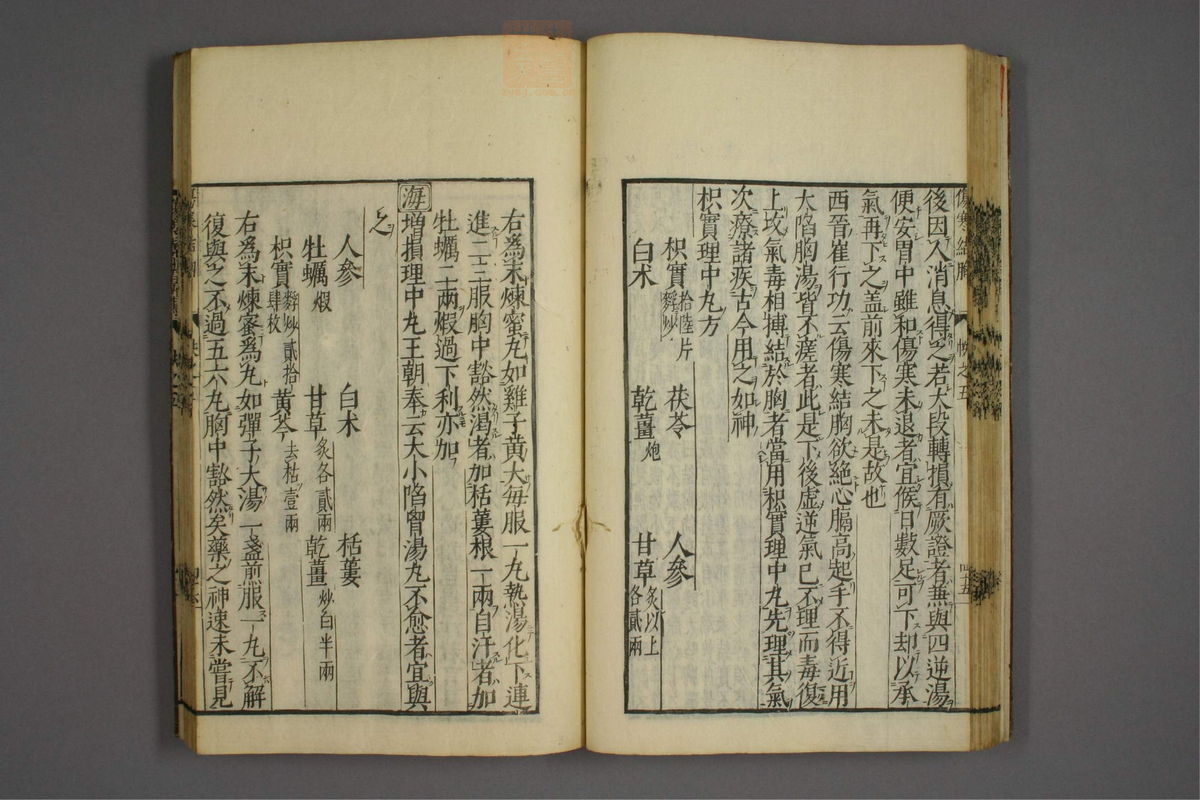 後因入消息得之若大段轉損有厥證者兼與四逆湯
便安胃中雖和傷寒未退者宜候日數足可下却以承
氣再下之盖前來下之未是故也
西晉崔行功云傷寒結胸欲絶心膈高起手不得近用
大陷胸湯皆不瘥者此是下後虚逆氣已不理而毒復
上攻氣毒相搏結於胸者當用枳實理中丸先理其氣
次療諸疾古今用之如神
枳實理中丸方
枳實拾陸片麩炒 茯苓 人參
白朮 乾薑炮 甘草炙以上各貳兩
右爲末煉蜜丸如雞子黄大毎服一丸熱湯化下連
進二三服胸中豁然渴者加栝蔞根一兩自汗者加
牡蠣二兩煆過下利亦加
海 増損理中丸王朝奉云大小陷胷湯丸不愈者宜與
之
人參 白朮 栝蔞
牡蠣煆 甘草炙各貳兩 乾薑炒白半兩
枳實麩炒貳拾肆枚 黄芩去枯壹兩
右爲末煉蜜爲丸如彈子大湯一盞煎服一丸不解
復與之不過五六丸胸中豁然矣藥之神速未嘗見